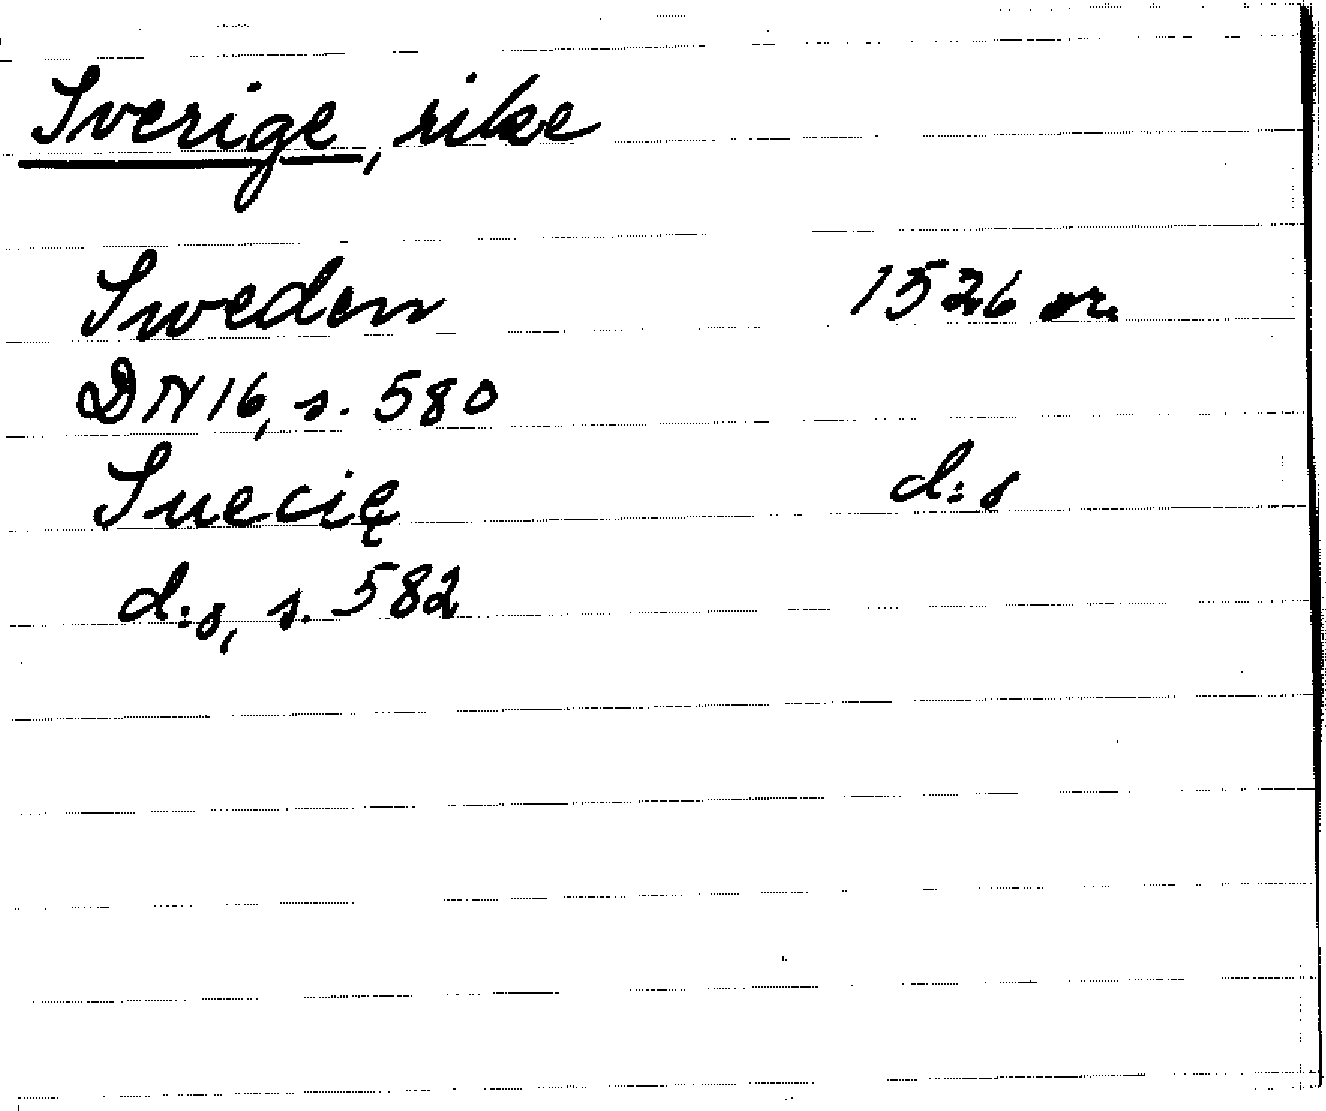 Sverige, rike
Sweden 1526 or.
DN 16, s. 580
Suecię d:o
d:o, s. 582